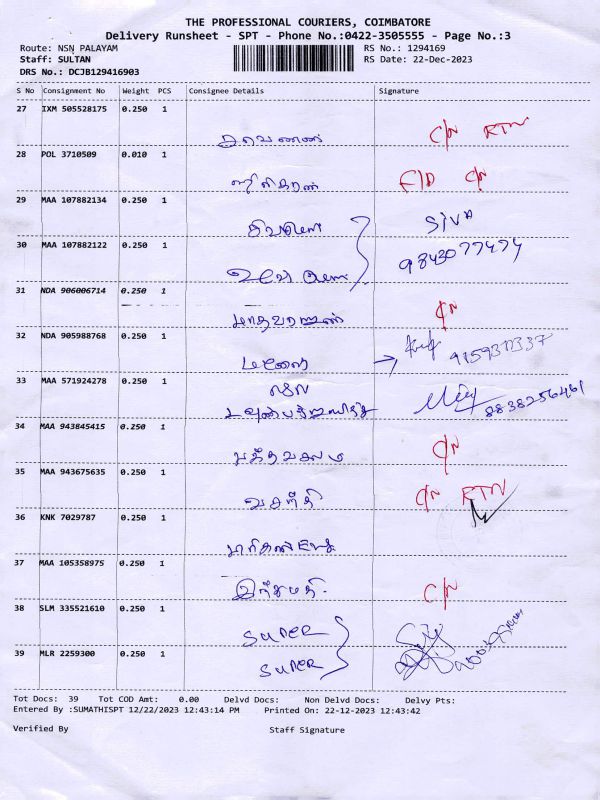 THE PROFESSIONAL COURIERS, COIMBATORE
Delivery Runsheet - SPT - Phone No.:0422-3505555 - Page No.:3
Route: NSN PALAYAM RS No.: 1294169
Staff: SULTAN RS Date: 22-Dec-2023
DRS No.: DCJB129416903
S No Consignment No Weight PCS Consignee Details Signature
27 IXM 505528175 0.250 1
சரவணன் C/N RTN
28 POL 3710509 0.010 1
ஸ்ரீதரன் C/N
29 MAA 107882134 0.250 1
SIVA
30 MAA 107882122 0.250 1
9843077474
31 NDA 906006714 0.250 1
C/N
32 NDA 905988768 0.250 1
33 MAA 571924278 0.250 1
8838256461
34 MAA 943845415 0.250 1
C/N
35 MAA 943675635 0.250 1
வசந்தி C/N RTN
36 KNK 7029787 0.250 1
37 MAA 105358975 0.250 1
இந்துமதி. C/N
38 SLM 335521610 0.250 1
SUPER
39 MLR 2259300 0.250 1
SUPER
Tot Docs: 39 Tot COD Amt: 0.00 Delvd Docs: Non Delvd Docs: Delvy Pts:
Entered By :SUMATHISPT 12/22/2023 12:43:14 PM Printed On: 22-12-2023 12:43:42
Verified By Staff Signature